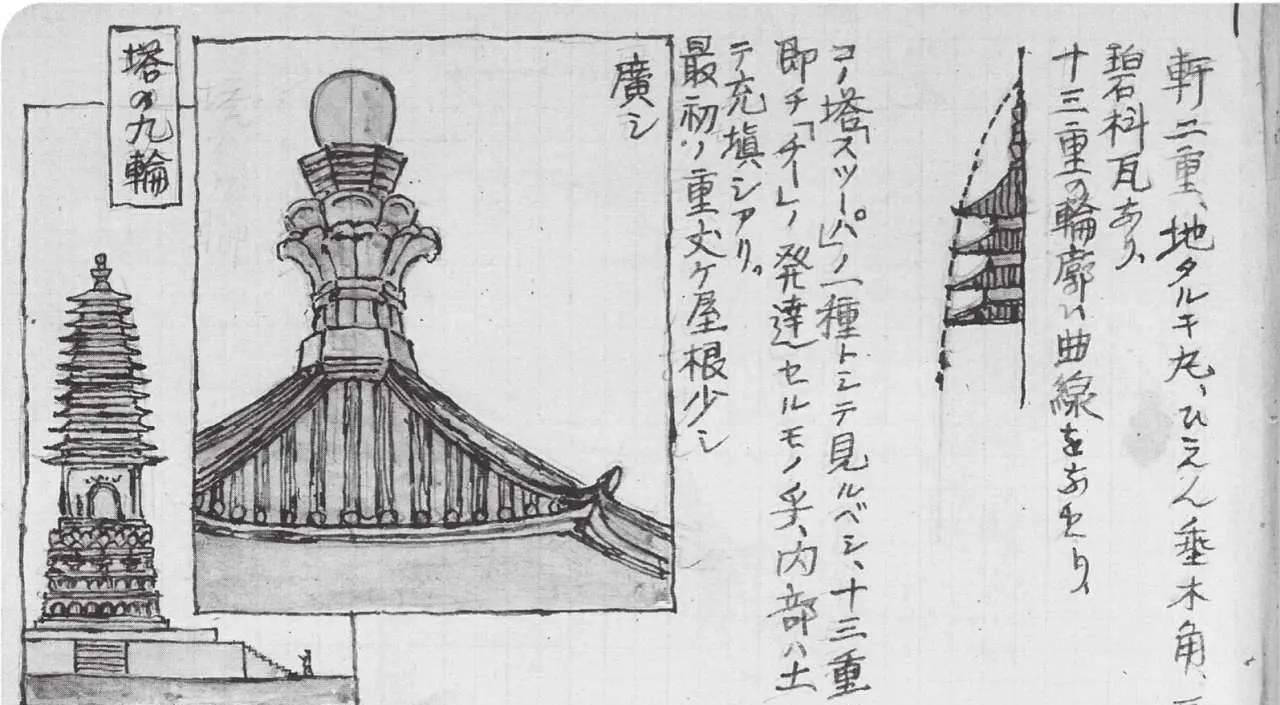 軒二重、地タルキ丸、ひえん垂木角、
碧枓瓦あり、
十三重の輪廓ハ曲線をなせり、
コノ塔「スツーパ」ノ一種トシテ見ルベシ、十三重
即チ「チー」ノ発達セルモノ乎、内部ハ土
テ充塡シアリ。
最初ノ重丈ケ屋根少シ
廣シ
塔の九輪